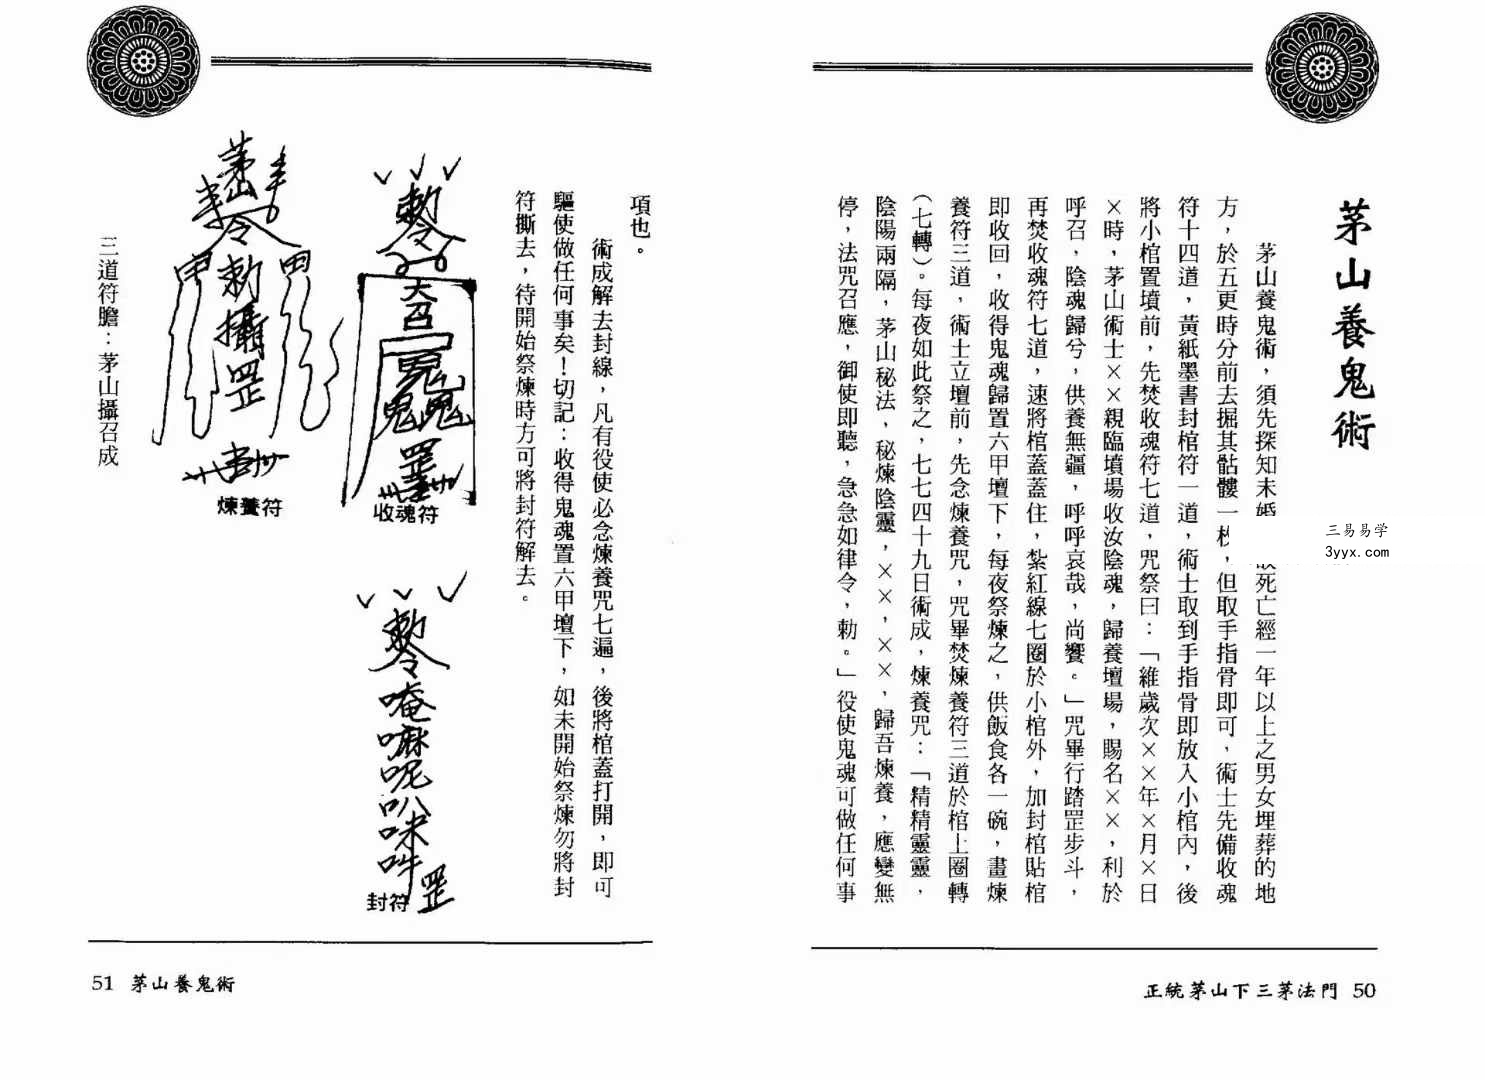 茅山養鬼術
茅山養鬼術，須先探知未婚死亡經一年以上之男女埋葬的地
方，於五更時分前去掘其骷髏一枚，但取手指骨即可，術士先備收魂
符十四道，黃紙墨書封棺符一道，術士取到手指骨即放入小棺內，後
將小棺置墳前，先焚收魂符七道，咒祭曰：「維歲次××年×月×日
×時，茅山術士××親臨墳場收汝陰魂，歸養壇場，賜名××，利於
呼召，陰魂歸兮，供養無疆，呼呼哀哉，尚饗。」咒畢行踏罡步斗，
再焚收魂符七道，速將棺蓋蓋住，紮紅線七圈於小棺外，加封棺貼棺
即收回，收得鬼魂歸置六甲壇下，每夜祭煉之，供飯食各一碗，畫煉
養符三道，術士立壇前，先念煉養咒，咒畢焚煉養符三道於棺上圈轉
（七轉）。每夜如此祭之，七七四十九日術成，煉養咒：「精精靈靈，
陰陽兩隔，茅山秘法，秘煉陰靈，××，××，歸吾煉養，應變無
停，法咒召應，御使即聽，急急如律令，勅。」役使鬼魂可做任何事
正統茅山下三茅法門 50
三易易学
3yyx.com
項也。
術成解去封線，凡有役使必念煉養咒七遍，後將棺蓋打開，即可
驅使做任何事矣！切記：收得鬼魂置六甲壇下，如未開始祭煉勿將封
符撕去，待開始祭煉時方可將封符解去。
勅令
大召
鬼鬼鬼
罡
收魂符
勅令
唵嘛呢叭咪吽
罡
封符
茅山
令
勅攝罡
甲
田
煉養符
三道符膽：茅山攝召成
51 茅山養鬼術